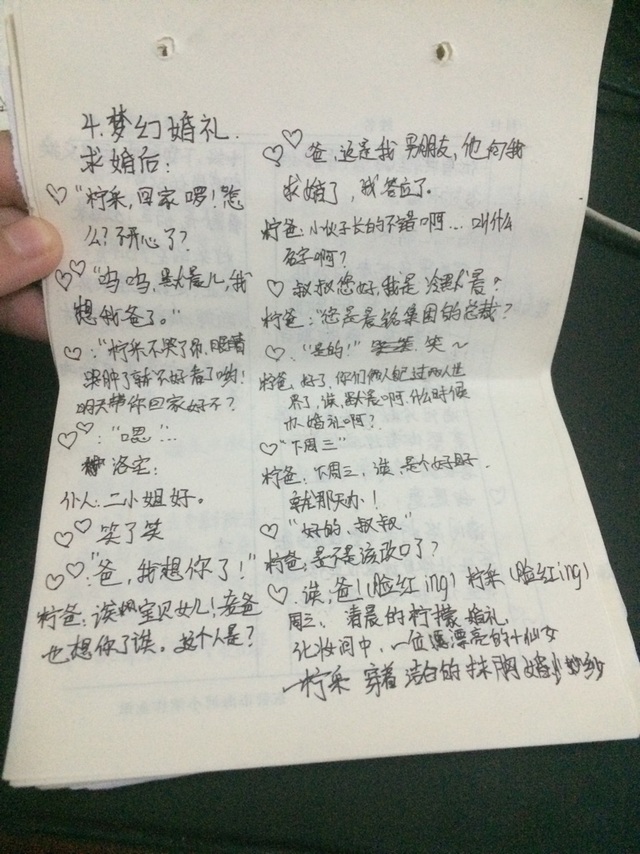 4.梦幻婚礼.
求婚后:
♡"柠采,回家啰!怎
么?不开心了?
♡♡"呜呜,默晨儿,我
想我爸了。"
♡:"柠采不哭了你,眼睛
哭肿了就不好看了哟!
明天带你回家好不?
♡♡:"嗯"…
洛宅:
仆人:二小姐好。
♡♡笑了笑
♡♡:"爸,我想你了!"
柠爸:诶 宝贝女儿!爸爸
也想你了诶。这个人是?
♡♡爸,这是我男朋友,他向我
求婚了,我答应了。
柠爸:小伙子长的不错啊…叫什么
名字啊?
♡叔叔您好,我是冷默晨?
柠爸:"您是晨铭集团的总裁?
♡:"是的!" 笑~
柠爸,好了,你们俩人 过两人世
界了,诶,默晨啊,什么时候
办婚礼啊?
♡"下周三"
柠爸:下周三,诶,是个好日子.
就那天办!
♡"好的,叔叔"
柠爸:是不是该改口了?
♡.诶,爸!(脸红ing)柠采(脸红ing)
周三、清晨的柠檬婚礼,
化妆间中,一位 漂亮的小仙女
—柠采 穿着洁白的抹胸婚纱